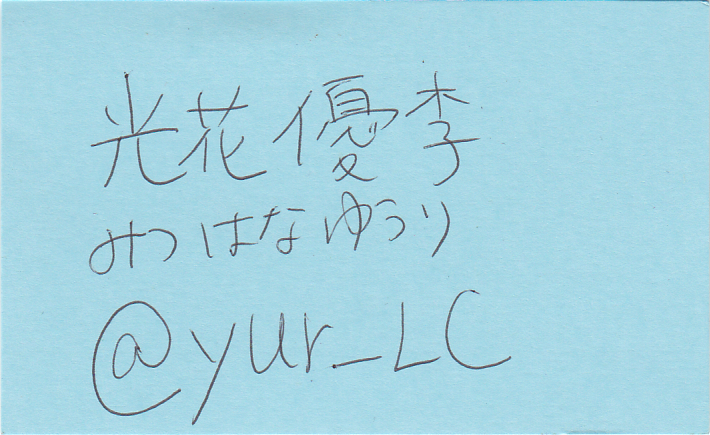 光花優李
みつはなゆうり
@yur_LC